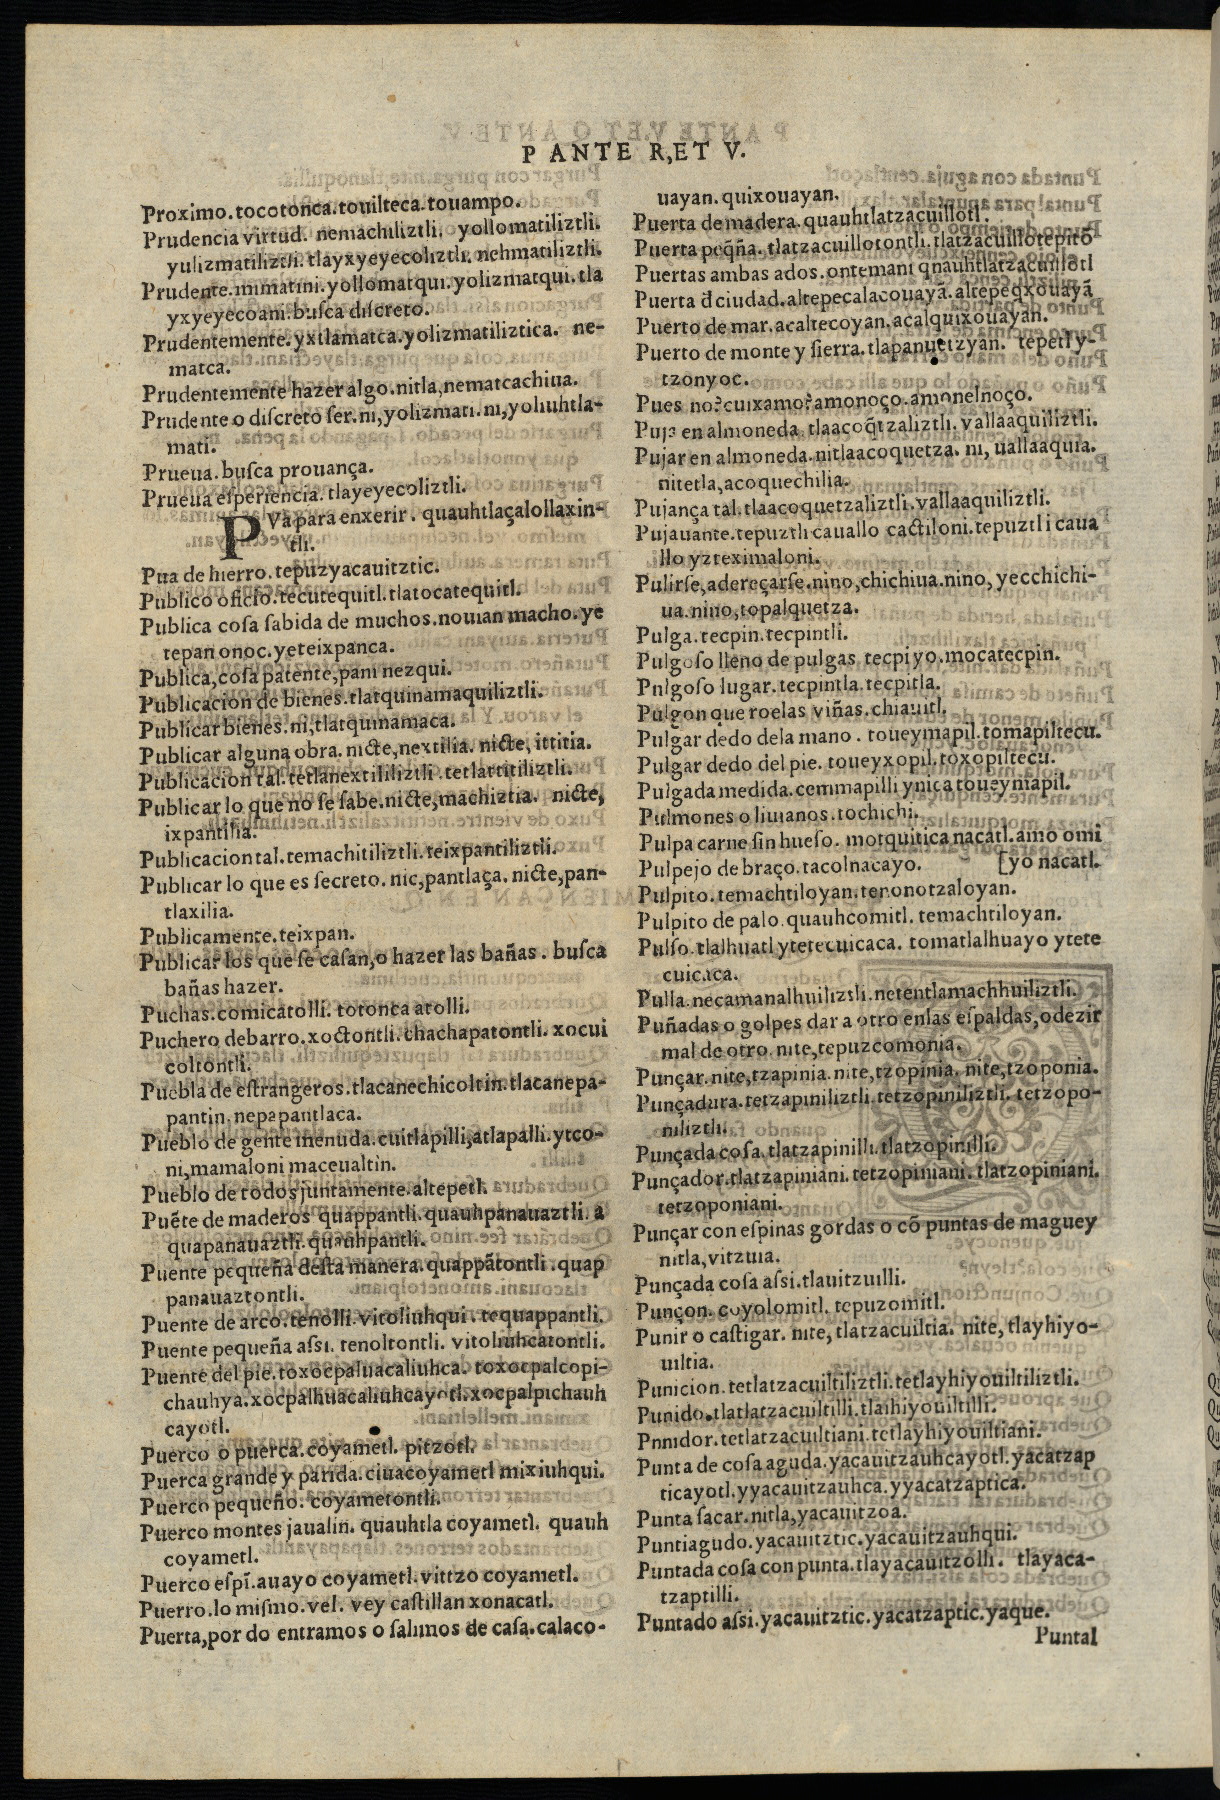 P ANTE R,ET V.
Proximo.tocotonca.touilteca.touampo.
Prudencia virtud. nemachiliztli. yollomatiliztli.
yulizmatiliztli.tlayxyeyecoliztli.nehmatiliztli.
Prudente.mimatini.yollomatqui.yolizmatqui.tla
yxyeyecoani.buſca diſcreto.
Prudentemente.yxtlamatca.yolizmatiliztica. ne-
matca.
Prudentemente hazer algo.nitla,nematcachiua.
Prudente o diſcreto ſer.ni,yolizmati.ni,yoliuhtla-
mati.
Prueua.buſca prouança.
Prueua eſperiencia.tlayeyecoliztli.
PVa para enxerir. quauhtlaçalollaxin-
tli.
Pua de hierro.tepuzyacauitztic.
Publico oficio.tecutequitl.tlatocatequitl.
Publica coſa ſabida de muchos.nouian macho.ye
tepan onoc.yeteixpanca.
Publica,coſa patente,pani nezqui.
Publicacion de bienes.tlatquinamaquiliztli.
Publicar bienes.ni,tlatquinamaca.
Publicar alguna obra.nicte,nextilia. nicte,ittitia.
Publicacion tal.tetlanextililiztli.tetlattitiliztli.
Publicar lo que no ſe ſabe.nicte,machiztia. nicte,
ixpantilia.
Publicacion tal.temachitiliztli.teixpantiliztli.
Publicar lo que es ſecreto.nic,pantlaça.nicte,pan-
tlaxilia.
Publicamente.teixpan.
Publicar los que ſe caſan,o hazer las bañas. buſca
bañas hazer.
Puchas.comicatolli.totonca atolli.
Puchero debarro.xoctontli.chachapatontli.xocui
coltontli.
Puebla de eſtrangeros.tlacanechicoltin.tlacanepa-
pantin.nepapantlaca.
Pueblo de gente menuda.cuitlapilli,atlapalli.ytco-
ni,mamaloni maceualtin.
Pueblo de todos juntamente.altepetl.
Puẽte de maderos quappantli.quauhpanauaztli.a
quapanauaztli.quauhpantli.
Puente pequeña deſta manera.quappãtontli.quap
panauaztontli.
Puente de arco.tenolli.vitoliuhqui.tequappantli.
Puente pequeña aſsi. tenoltontli. vitoliuhcatontli.
Puente del pie.toxocpaluacaliuhca. toxocpalcopi-
chauhya.xocpalhuacaliuhcayotl.xocpalpichauh
cayotl.
Puerco o puerca.coyametl. pitzotl.
Puerca grande y parida.ciuacoyametl mixiuhqui.
Puerco pequeño. coyametontli.
Puerco montes jaualin. quauhtla coyametl. quauh
coyametl.
Puerco eſpĩ.auayo coyametl.vittzo coyametl.
Puerro.lo miſmo.vel. vey caſtillan xonacatl.
Puerta,por do entramos o ſalimos de caſa.calaco-
uayan.quixouayan.
Puerta de madera.quauhtlatzacuillotl.
Puerta peq̃ña.tlatzacuillotontli.tlatzacuillotepitõ
Puertas ambas ados.ontemani qnauhtlatzacuillotl
Puerta đ ciudad.altepecalacouayã.altepeqxouayã
Puerto de mar.acaltecoyan.acalquixouayan.
Puerto de monte y ſierra.tlapanuetzyan. tepetl y-
tzonyoc.
Pues no?cuixamo?amonoço.amonelnoço.
Puja en almoneda.tlaacoq̃tzaliztli.vallaaquiliztli.
Pujar en almoneda.nitlaacoquetza. ni, uallaaquia.
nitetla,acoquechilia.
Pujança tal.tlaacoquetzaliztli.vallaaquiliztli.
Pujauante.tepuztli cauallo cactiloni.tepuztli caua
llo yzteximaloni.
Pulirſe,adereçarſe.nino,chichiua.nino,yecchichi-
ua.nino,topalquetza.
Pulga.tecpin.tecpintli.
Pulgoſo lleno de pulgas tecpiyo.mocatecpin.
Pnlgoſo lugar.tecpintla.tecpitla.
Pulgon que roelas viñas.chiauitl.
Pulgar dedo dela mano. toueymapil.tomapiltecu.
Pulgar dedo del pie. toueyxopil.toxopiltecu.
Pulgada medida.cemmapilli ynica toueymapil.
Pulmones o liuianos.tochichi.
Pulpa carne ſin hueſo. motquitica nacatl.amo omi
Pulpejo de braço.tacolnacayo. [yo nacatl.
Pulpito.temachtiloyan.tenonotzaloyan.
Pulpito de palo.quauhcomitl.temachtiloyan.
Pulſo.tlalhuatl ytetecuicaca. tomatlalhuayo ytete
cuicaca.
Pulla.necamanalhuiliztli.netentlamachhuiliztli.
Puñadas o golpes dar a otro enlas eſpaldas,odezir
mal de otro.nite,tepuzcomonia.
Punçar.nite,tzapinia.nite,tzopinia. nite,tzoponia.
Punçadura.tetzapiniliztli.tetzopiniliztli. tetzopo-
niliztli.
Punçada coſa.tlatzapinilli.tlatzopinilli.
Punçador.tlatzapiniani.tetzopiniani.tlatzopiniani.
tetzoponiani.
Punçar con eſpinas gordas o cõ puntas de maguey
nitla,vitzuia.
Punçada coſa aſsi.tlauitzuilli.
Punçon. coyolomitl. tepuzomitl.
Punir o caſtigar. nite,tlatzacuiltia. nite,tlayhiyo-
uiltia.
Punicion.tetlatzacuiltiliztli.tetlayhiyouiltiliztli.
Punido.tlatlatzacuiltilli.tlaihiyouiltilli.
Pnnidor.tetlatzacuiltiani.tetlayhiyouiltiani.
Punta de coſa aguda.yacauitzauhcayotl.yacatzap
ticayotl.yyacauitzauhca.yyacatzaptica.
Punta ſacar.nitla,yacauitzoa.
Puntiagudo.yacauitztic.yacauitzauhqui.
Puntada coſa con punta.tlayacauitzolli. tlayaca-
tzaptilli.
Puntado aſsi.yacauitztic.yacatzaptic.yaque.
Puntal